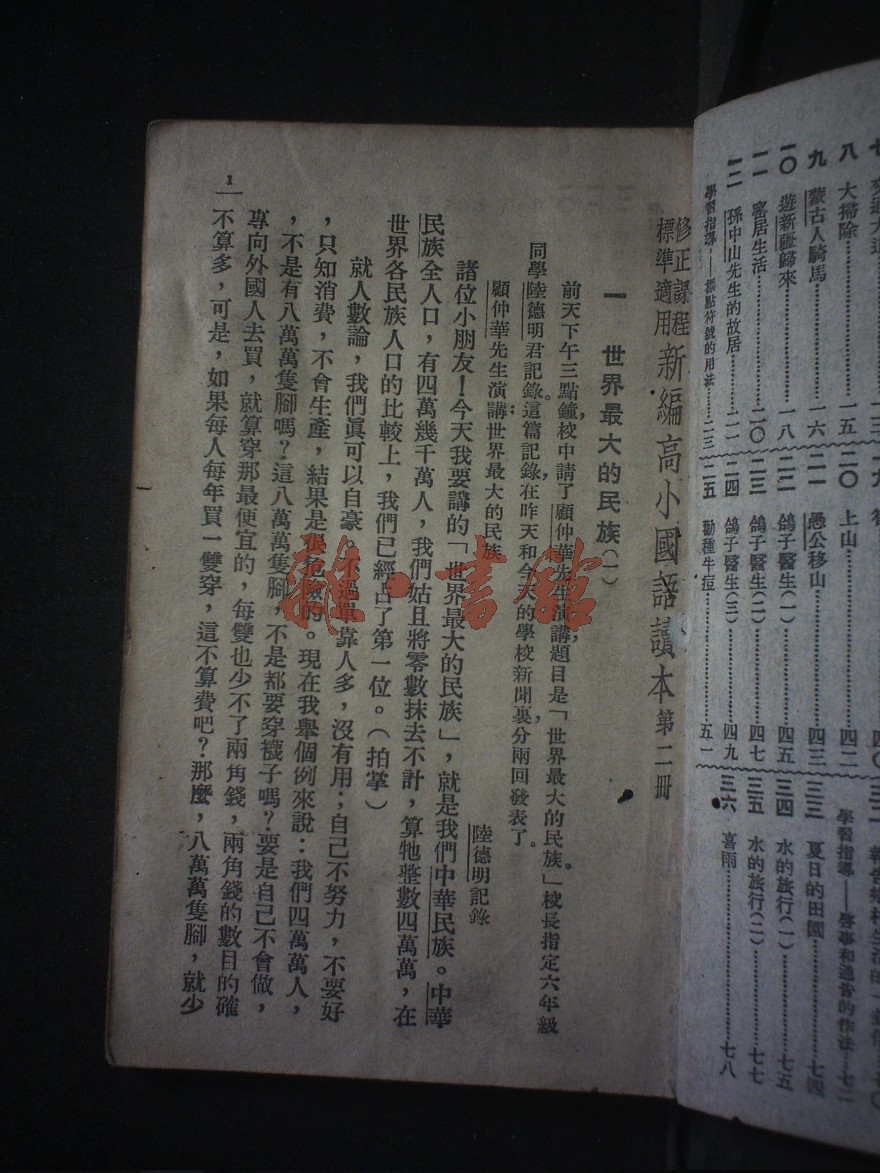 八　大掃除……一五
九　蒙古人騎馬……一六
一〇　遊新疆歸來……一八
一一　寄居生活……二〇
一二　孫中山先生的故居……二一
學習指導——標點符號的用法……二三
二〇　上山……四二
二一　愚公移山……四三
二二　鴿子醫生(一)……四五
二三　鴿子醫生(二)……四七
二四　鴿子醫生(三)……四九
二五　勸種牛痘……五一
學習指導——啓事和通告的作法……七二
三三　夏日的田園……七四
三四　水的旅行(一)……七五
三五　水的旅行(二)……七七
三六　喜雨……七八
修正課程標準適用 新編高小國語讀本 第二冊
一　世界最大的民族(一)
前天下午三點鐘，校中請了顧仲華先生演講，題目是「世界最大的民族。」校長指定六年級
同學陸德明君記錄。這篇記錄，在昨天和今天的學校新聞裏，分兩回發表了。
顧仲華先生演講：世界最大的民族
陸德明記錄
諸位小朋友！今天我要講的「世界最大的民族」，就是我們中華民族。中華
民族全人口，有四萬幾千萬人，我們姑且將零數抹去不計，算牠整數四萬萬，在
世界各民族人口的比較上，我們已經占了第一位。(拍掌)
就人數論，我們眞可以自豪。不過單靠人多，沒有用；自己不努力，不要好
，只知消費，不會生產，結果是很危險的。現在我舉個例來說：我們四萬萬人，
，不是有八萬萬隻腳嗎？這八萬萬隻腳，不是都要穿襪子嗎？要是自己不會做，
專向外國人去買，就算穿那最便宜的，每雙也少不了兩角錢，兩角錢的數目的確
不算多，可是，如果每人每年買一雙穿，這不算費吧？那麼，八萬萬隻腳，就少
1
雜·書館